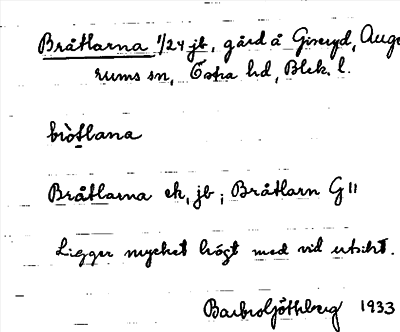 Bråtlarna 1/24 jb, gård å Gireryd, Auge
rums sn, Östra hd, Blek. l.
bròtlana
Bråtlarna ek, jb; Bråtlarn G11
Ligger mycket högt med vid utsikt.
Barbro Göthberg 1933